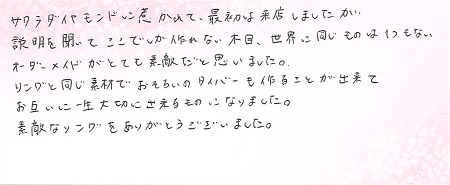 サクラダイヤモンドに惹かれて、最初は来店しましたが、
説明を聞いてここでしか作れない木目、世界に同じものは1つもない
オーダーメイドがとても素敵だと思いました。
リングと同じ素材でおそろいのタイバーも作ることが出来て
お互いに一生大切に出来るものになりました。
素敵なリングをありがとうございました。